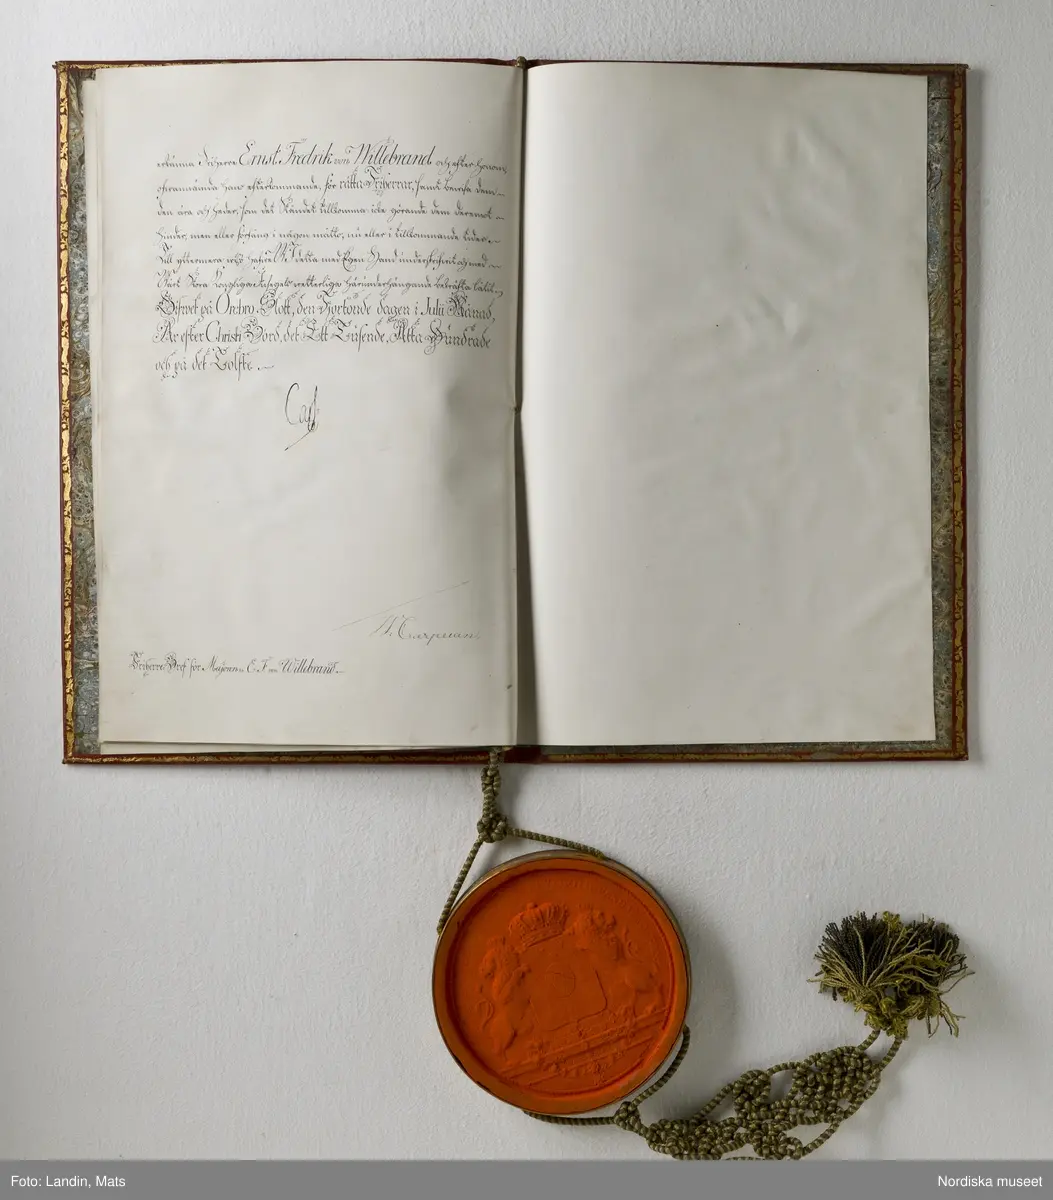 erkänna Friherre Ernst Fredrik von Willebrand och efter honom
ofvannämda hans efterkommande, för rätta Friherrar, samt bevisa dem
den ära och heder, som det Ståndet tillkomma icke görande dem deremot
hinder, men eller förfång i någon måtto, nu eller i tillkommande tider.
Till yttermera visso hafve Wi detta med Egen Hand underskrifvit och med
Wårt Stora Kongliga Insegels härunderhängande bekräfta låtit.
Gifwet på Örebro Slott, den Fjortonde dagen i Julii Månad,
År efter Christi Börd, det Ett Tusende, Åtta Hundrade
och på det Tolfte.
Carl
Friherre Bref för Majoren E. F. von Willebrand.
Foto: Landin, Mats
Nordiska museet